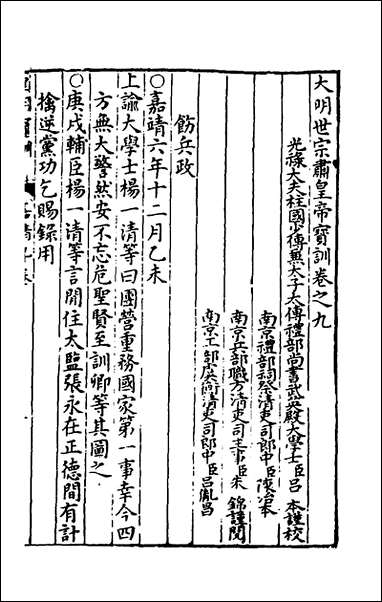 大明世宗肅皇帝寶訓卷之九
光祿大夫柱國少傅兼太子太傅禮部尚書武英殿大學士臣呂 本謹校
南京禮部祠祭清吏司郎中臣陳治本
南京兵部職方清吏司主事臣朱 錦謹閱
南京工部虞衡清吏司郎中臣呂胤昌
飭兵政
○嘉靖六年十二月乙未
上諭大學士楊一清等曰團營重務國家第一事幸今四
方無大警然安不忘危聖賢至訓卿等其圖之
○庚戌輔臣楊一清等言閒住太監張永在正德間有計
擒逆黨功乞賜錄用